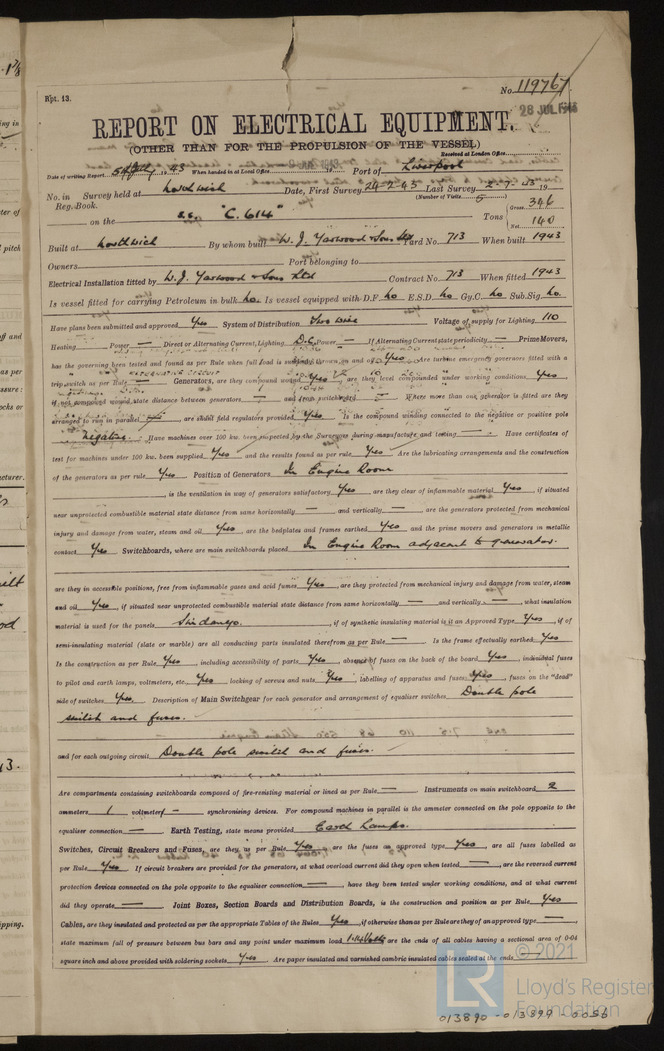 Rpt. 13.
No. 119767
28 JUL 1943
REPORT ON ELECTRICAL EQUIPMENT.
(OTHER THAN FOR THE PROPULSION OF THE VESSEL)
Received at London Office
Date of writing Report 19 43 When handed in at Local Office 19 Port of Liverpool
No. in Survey held at Northwich Date, First Survey 24-2-43 Last Survey 2-7-43 19
Reg. Book. (Number of Visits 5)
on the s.s. "C. 614" Tons Gross 346 Net 140
Built at Northwich By whom built W. J. Yarwood & Sons Ltd Yard No. 713 When built 1943
Owners Port belonging to
Electrical Installation fitted by W. J. Yarwood & Sons Ltd Contract No. 713 When fitted 1943
Is vessel fitted for carrying Petroleum in bulk No. Is vessel equipped with D.F. No E.S.D. No Gy.C. No Sub.Sig. No.
Have plans been submitted and approved Yes System of Distribution Two wire Voltage of supply for Lighting 110
Heating Power — Direct or Alternating Current, Lighting D.C. Power — If Alternating Current state periodicity — Prime Movers,
has the governing been tested and found as per Rule when full load is suddenly thrown on and off Yes Are turbine emergency governors fitted with a
trip switch as per Rule — Generators, are they compound wound Yes, are they level compounded under working conditions Yes
if not compound wound state distance between generators — and from switchboard — Where more than one generator is fitted are they
arranged to run in parallel —, are shunt field regulators provided Yes Is the compound winding connected to the negative or positive pole
Negative. Have machines over 100 kw. been inspected by the Surveyors during manufacture and testing — Have certificates of
test for machines under 100 kw. been supplied Yes and the results found as per rule Yes Are the lubricating arrangements and the construction
of the generators as per rule Yes Position of Generators In Engine Room
, is the ventilation in way of generators satisfactory Yes, are they clear of inflammable material Yes, if situated
near unprotected combustible material state distance from same horizontally — and vertically —, are the generators protected from mechanical
injury and damage from water, steam and oil Yes, are the bedplates and frames earthed Yes and the prime movers and generators in metallic
contact Yes Switchboards, where are main switchboards placed In Engine Room adjacent to generator.
are they in accessible positions, free from inflammable gases and acid fumes Yes, are they protected from mechanical injury and damage from water, steam
and oil Yes, if situated near unprotected combustible material state distance from same horizontally — and vertically —, what insulation
material is used for the panels Sindanyo., if of synthetic insulating material is it an Approved Type Yes, if of
semi-insulating material (slate or marble) are all conducting parts insulated therefrom as per Rule — Is the frame effectually earthed Yes
Is the construction as per Rule Yes, including accessibility of parts Yes, absence of fuses on the back of the board Yes, individual fuses
to pilot and earth lamps, voltmeters, etc. Yes locking of screws and nuts Yes, labelling of apparatus and fuses Yes, fuses on the "dead"
side of switches Yes. Description of Main Switchgear for each generator and arrangement of equaliser switches Double pole
switch and fuses.
and for each outgoing circuit Double pole switch and fuses.
Are compartments containing switchboards composed of fire-resisting material or lined as per Rule — Instruments on main switchboard 2
ammeters 1 voltmeters — synchronising devices. For compound machines in parallel is the ammeter connected on the pole opposite to the
equaliser connection — Earth Testing, state means provided Earth Lamps.
Switches, Circuit Breakers and Fuses, are they as per Rule Yes are the fuses an approved type Yes, are all fuses labelled as
per Rule Yes If circuit breakers are provided for the generators, at what overload current did they open when tested —, are the reversed current
protection devices connected on the pole opposite to the equaliser connection —, have they been tested under working conditions, and at what current
did they operate — Joint Boxes, Section Boards and Distribution Boards, is the construction and position as per Rule Yes
Cables, are they insulated and protected as per the appropriate Tables of the Rules Yes, if otherwise than as per Rule are they of an approved type —,
state maximum fall of pressure between bus bars and any point under maximum load 1.14 Volts are the ends of all cables having a sectional area of 0·04
square inch and above provided with soldering sockets Yes Are paper insulated and varnished cambric insulated cables sealed at the ends
© 2021
LR
Lloyd's Register
Foundation
013890-013899-0056